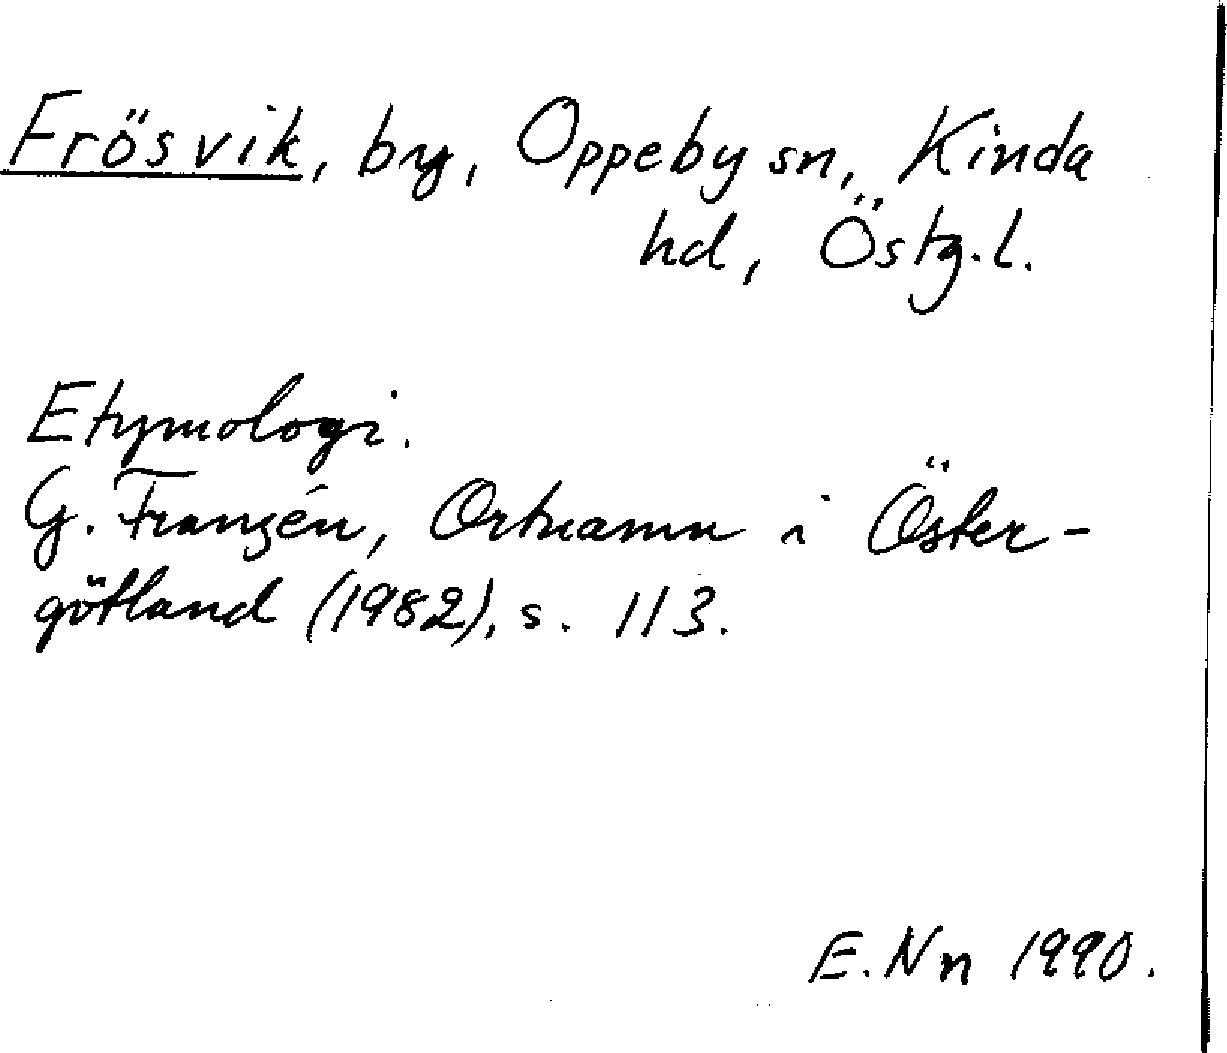 Frösvik, by, Oppeby sn, Kinda
hd, Östg.l.
Etymologi.
G. Franzén, Ortnamn i Öster-
götland (1982), s. 113.
E. Nn 1990.